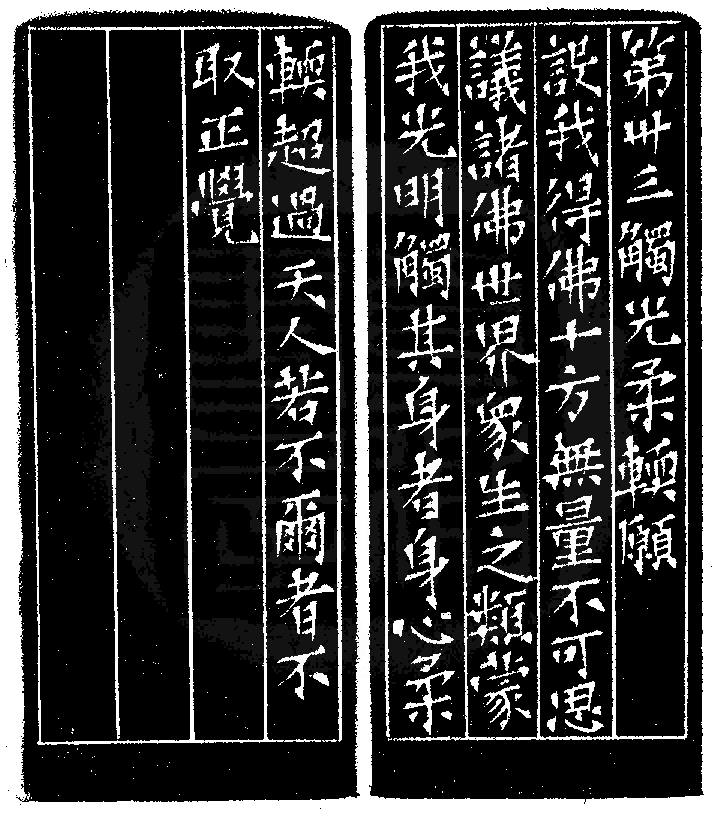 第卅三觸光柔輭願
設我得佛十方無量不可思
議諸佛世界衆生之類蒙
我光明觸其身者身心柔
輭超過天人若不爾者不
取正覺